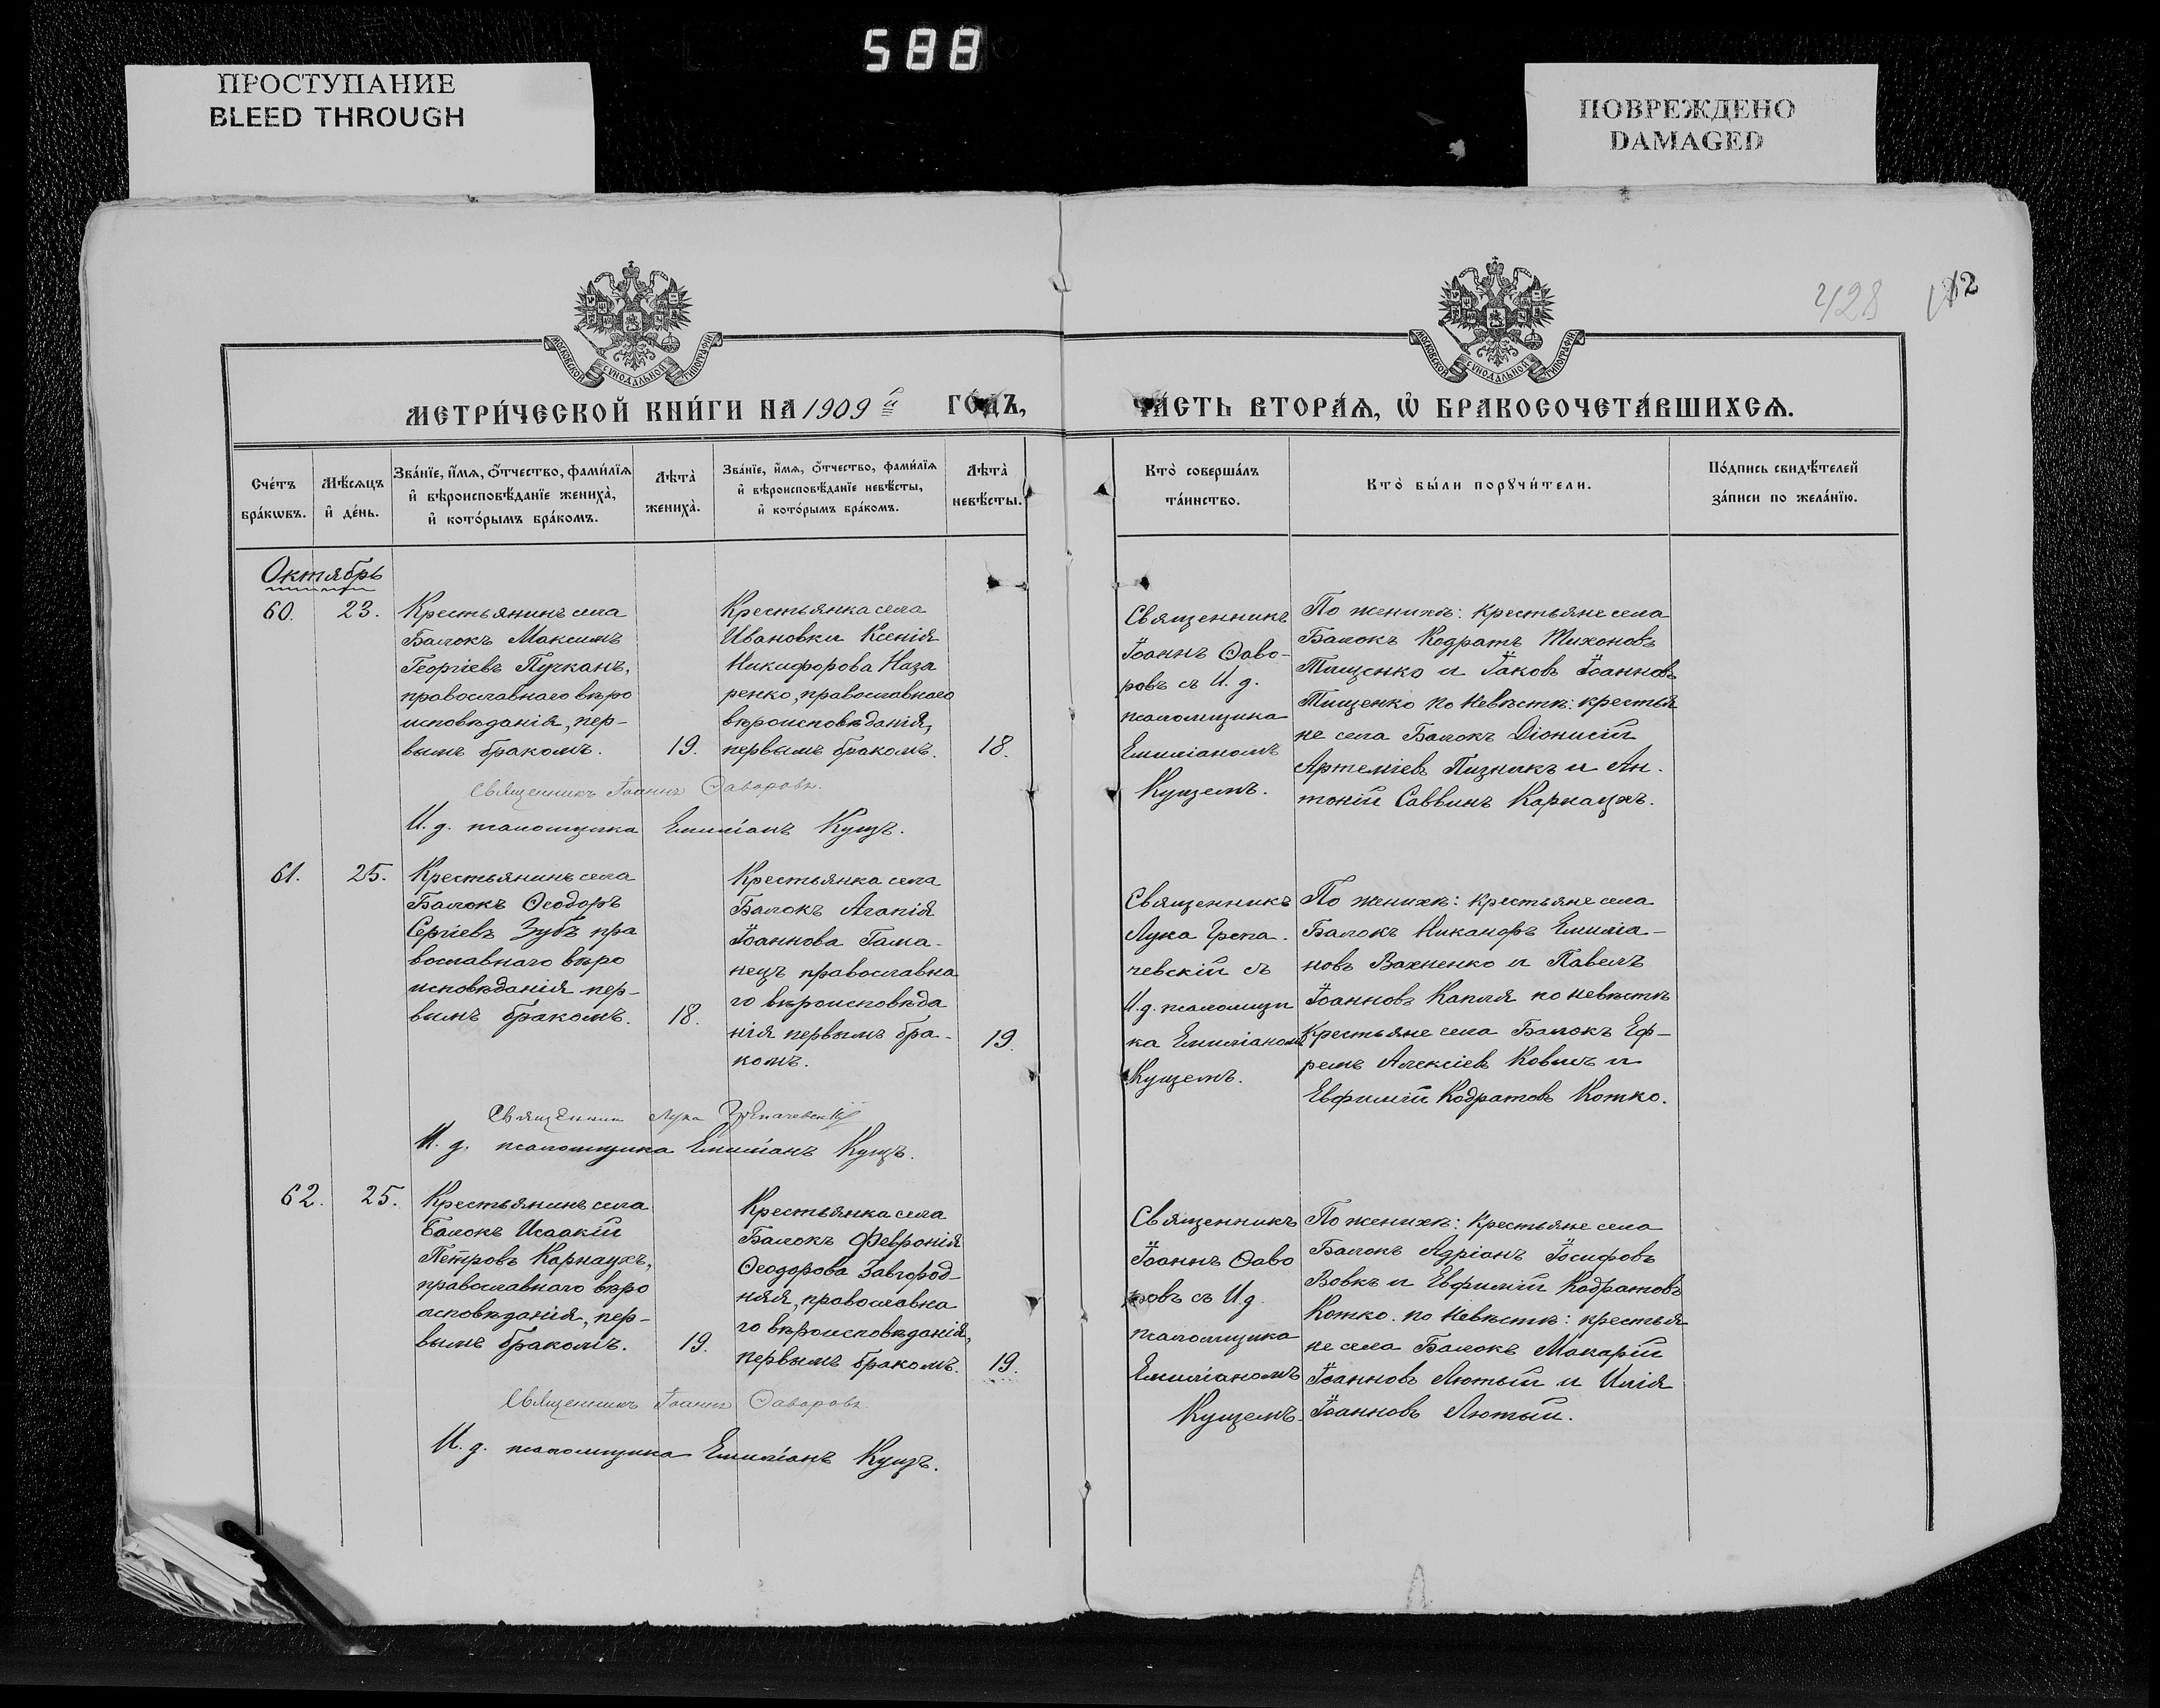 588
ПРОСТУПАНИЕ
BLEED THROUGH
ПОВРЕЖДЕНО
DAMAGED
428
МОСКОВСКОЙ СѴНОДАЛЬНОЙ ТИПОГРАФІИ
МОСКОВСКОЙ СѴНОДАЛЬНОЙ ТИПОГРАФІИ
МЕТРИ́ЧЕСКОЙ КНИ́ГИ НА 1909 й ГО́ДЪ,
ЧА́СТЬ ВТОРА́Ѧ, Ѡ҆ БРАКОСОЧЕТА́ВШИХСѦ.
Сче́тъ
бра́кѡвъ.
Мѣ́сѧцъ
и҆ де́нь.
Зва́нїе, и҆́мѧ, ѻ҆́тчество, фами́лїѧ
и҆ вѣроисповѣ́данїе жениха̀,
и҆ кото́рымъ бра́комъ.
Лѣта̀
жениха̀.
Зва́нїе, и҆́мѧ, ѻ҆́тчество, фами́лїѧ
и҆ вѣроисповѣ́данїе невѣ́сты,
и҆ кото́рымъ бра́комъ.
Лѣта̀
невѣ́сты.
Кто̀ соверша́лъ
та́инство.
Кто̀ бы́ли порꙋчи́тели.
По́дпись свидѣ́телей
за́писи по жела́нїю.
Октябрь
60.
23.
Крестьянинъ села
Балокъ Максимъ
Георгіевъ Пучканъ,
православнаго вѣро
исповѣданія, пер-
вымъ бракомъ.
19.
Крестьянка села
Ивановки Ксенія
Никифорова Наза
ренко, православнаго
вѣроисповѣданія,
первымъ бракомъ.
18.
Священникъ
Іоаннъ Ѳаво-
ровъ съ И. д.
псаломщика
Емиліаномъ
Кущемъ.
По женихѣ: крестьяне села
Балокъ Кодратъ Тихоновъ
Тищенко и Іаковъ Іоанновъ
Тищенко по невѣстѣ: крестья
не села Балокъ Діонисій
Артеміевъ Пизникъ и Ан-
тоній Саввинъ Карнаухъ.
Священникъ Іоаннъ Ѳаворовъ.
И. д. псаломщика Емиліанъ Кущъ.
61.
25.
Крестьянинъ села
Балокъ Ѳеодоръ
Сергіевъ Зубъ пра
вославнаго вѣро
исповѣданія пер-
вымъ бракомъ.
18.
Крестьянка села
Балокъ Агапія
Іоаннова Гама-
нецъ православна
го вѣроисповѣда
нія первымъ бра-
комъ.
19.
Священникъ
Лука Грепа-
чевскій съ
И.д. псаломщи
ка Емиліаномъ
Кущемъ.
По женихѣ: крестьяне села
Балокъ Никаноръ Емиліа-
новъ Вахненко и Павелъ
Іоанновъ Капля по невѣстѣ
Крестьяне села Балокъ Еф-
ремъ Алексіевъ Ковыль и
Евфимій Кодратовъ Котко.
Священникъ Лука Грепачевскій
И. д. псаломщика Емиліанъ Кущъ.
62.
25.
Крестьянинъ села
Балокъ Исаакій
Петровъ Карнаухъ,
православнаго вѣро
исповѣданія, пер-
вымъ бракомъ.
19.
Крестьянка села
Балокъ Февронія
Ѳеодорова Завгород-
няя, православна
го вѣроисповѣданія,
первымъ бракомъ.
19.
Священникъ
Іоаннъ Ѳаво
ровъ съ И.д.
псаломщика
Емиліаномъ
Кущемъ.
По женихѣ: крестьяне села
Балокъ Адріанъ Іосифовъ
Вовкъ и Евфимій Кодратовъ
Котко. по невѣстѣ: крестья
не села Балокъ Макарій
Іоанновъ Лютый и Илія
Іоанновъ Лютый.
Священникъ Іоаннъ Ѳаворовъ.
И. д. псаломщика Емиліанъ Кущъ.